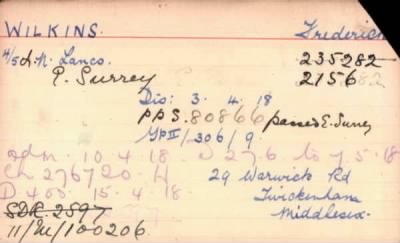 WILKINS. Frederick
4/5 L. N. Lancs. 235282
E. Surrey 215682
Dis: 3. 4. 18
PPS. 80866 passed E. Surrey
GPII/306/9
adm. 10.4.18 D 27.6 to 7.5.18
Ch 276720 H
D 400. 15.4.18. 29 Warwick Rd
SDR. 2897 Twickenham
11/M/100206 Middlesex.